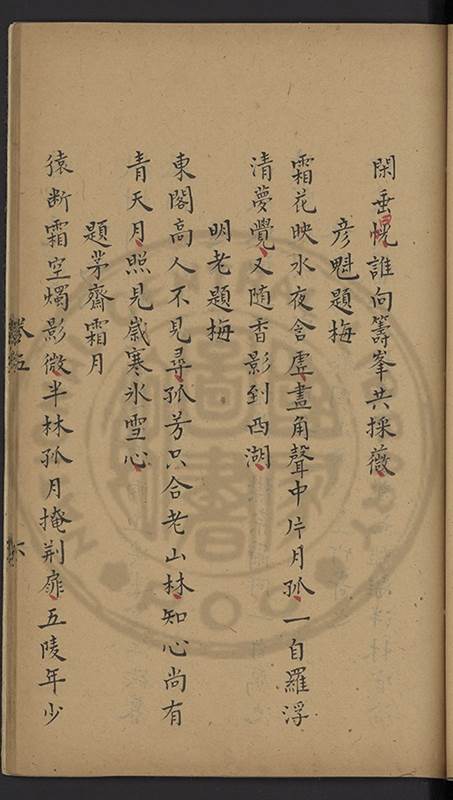 閑垂幌誰向籌峯共採薇
彥魁題梅
霜花映水夜含虛畫角聲中片月孤一自羅浮
清夢覺又隨香影到西湖
明老題梅
東閣高人不見尋孤芳只合老山林知心尚有
青天月照見歲寒氷雪心
題茅齋霜月
猿断霜空燭影微半林孤月掩荆扉五陵年少